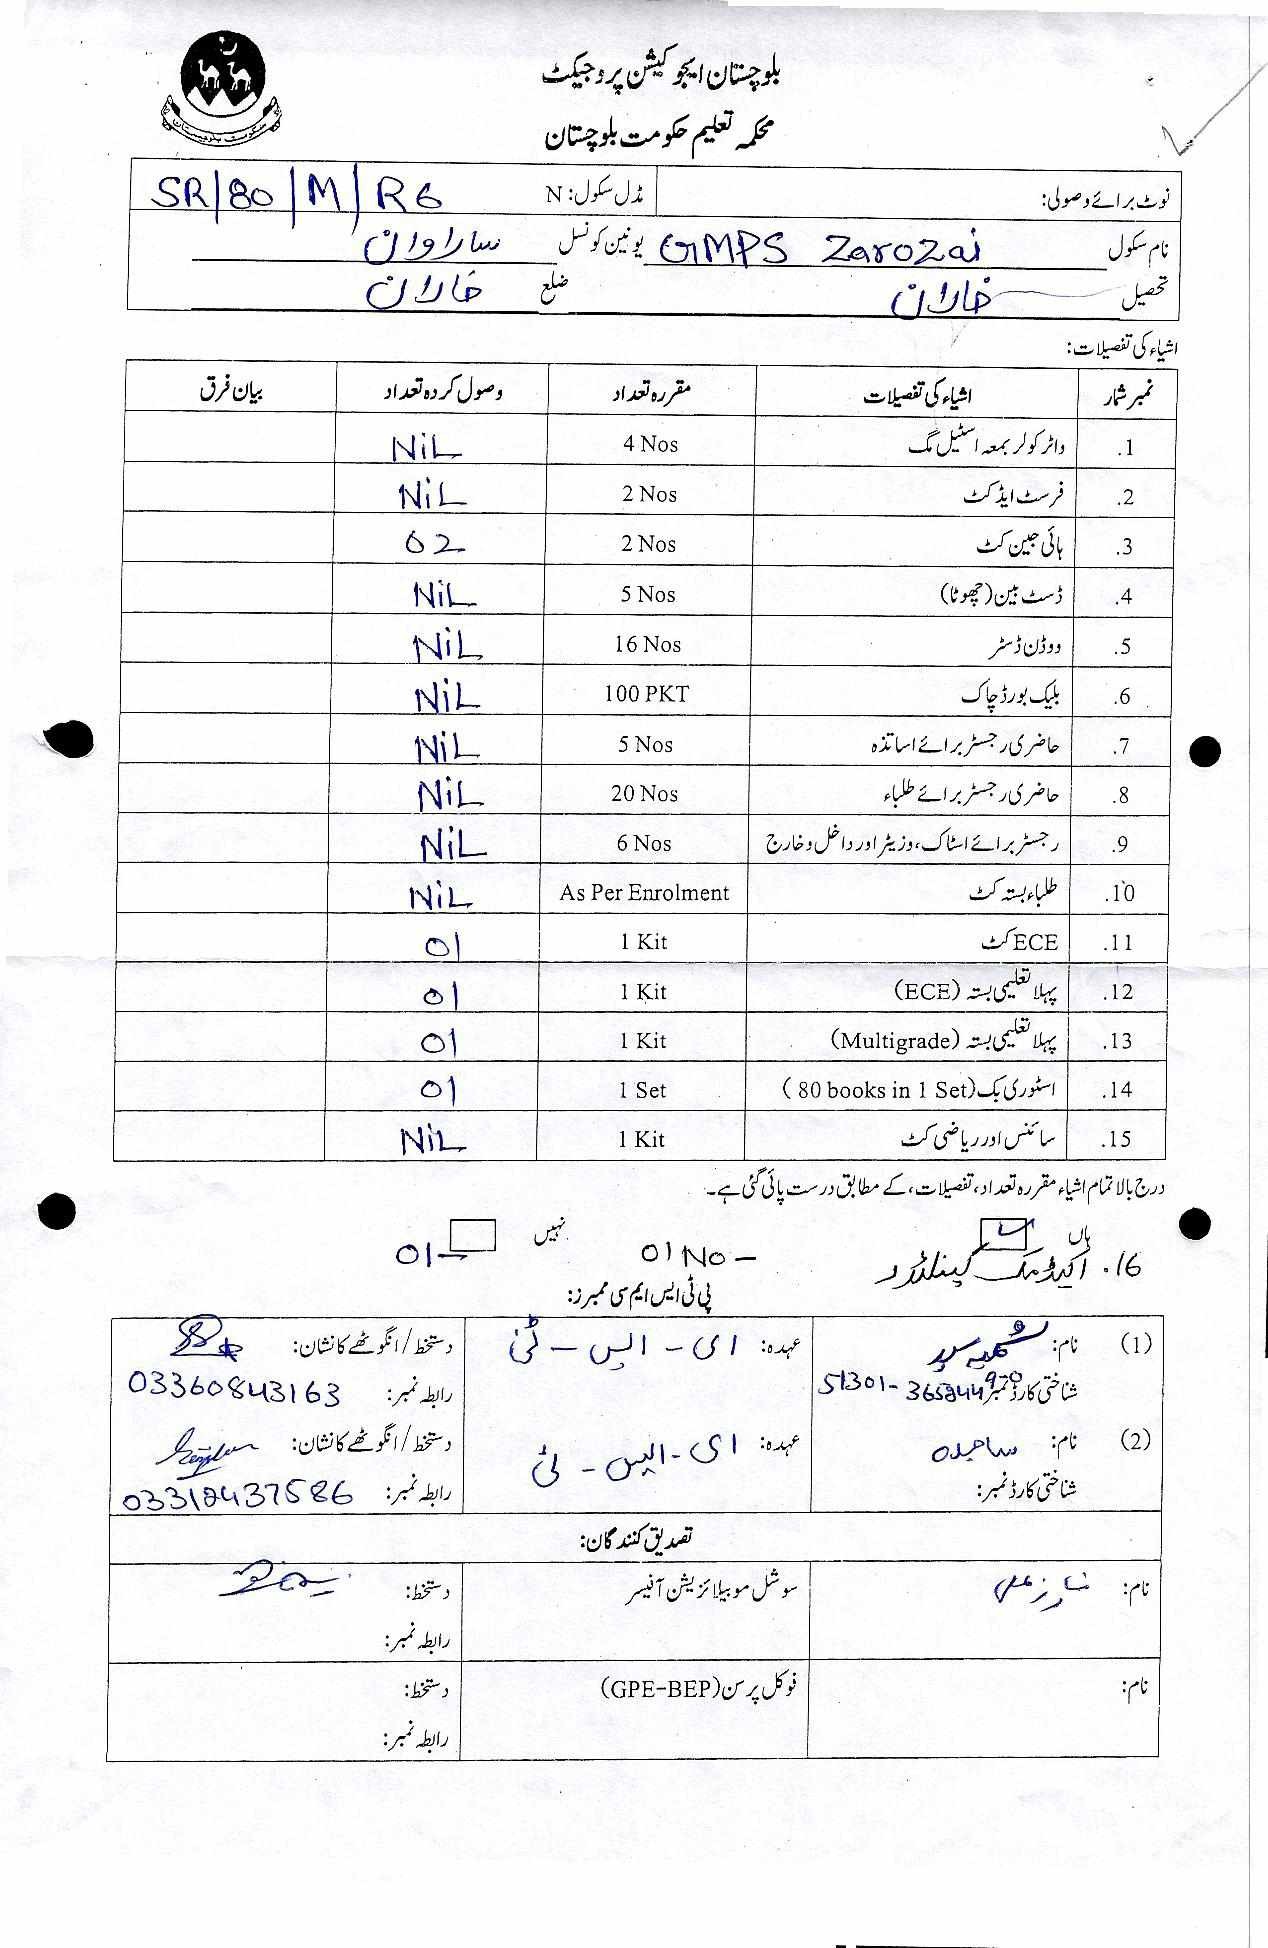 بلوچستان ایجوکیشن پروجیکٹ
محکمہ تعلیم حکومت بلوچستان
نوٹ برائے وصولی: مڈل سکول: N SR/80/M/R6
نام سکول GMPS Zarozai یونین کونسل ساراوان
تحصیل خاران ضلع خاران
اشیاء کی تفصیلات:
نمبر شمار اشیاء کی تفصیلات مقررہ تعداد وصول کردہ تعداد بیان فرق
1. واٹر کولر بمعہ اسٹیل مگ 4 Nos NiL
2. فرسٹ ایڈ کٹ 2 Nos NiL
3. ہائی جین کٹ 2 Nos 02
4. ڈسٹ بین (چھوٹا) 5 Nos NiL
5. ووڈن ڈسٹر 16 Nos NiL
6. بلیک بورڈ چاک 100 PKT NiL
7. حاضری رجسٹر برائے اساتذہ 5 Nos NiL
8. حاضری رجسٹر برائے طلباء 20 Nos NiL
9. رجسٹر برائے اسٹاک، وزیٹر اور داخل و خارج 6 Nos NiL
10. طلباء بستہ کٹ As Per Enrolment NiL
11. ECE کٹ 1 Kit 01
12. پہلا تعلیمی بستہ (ECE) 1 Kit 01
13. پہلا تعلیمی بستہ (Multigrade) 1 Kit 01
14. اسٹوری بک (80 books in 1 Set) 1 Set 01
15. سائنس اور ریاضی کٹ 1 Kit NiL
درج بالا تمام اشیاء مقررہ تعداد، تفصیلات، کے مطابق درست پائی گئی ہے۔
ہاں نہیں
16. اکیڈمک کیلنڈر 01 No – 01
پی ٹی ایس ایم سی ممبرز:
(1) نام: عہدہ: ای - ایس - ٹی دستخط/انگوٹھے کا نشان:
شناختی کارڈ نمبر: رابطہ نمبر: 03360843163
(2) نام: ساجدہ عہدہ: ای - ایس - ٹی دستخط/انگوٹھے کا نشان:
شناختی کارڈ نمبر: رابطہ نمبر: 03312437586
تصدیق کنندگان:
نام: سوشل موبیلائزیشن آفیسر دستخط:
رابطہ نمبر:
نام: فوکل پرسن (GPE-BEP) دستخط:
رابطہ نمبر: